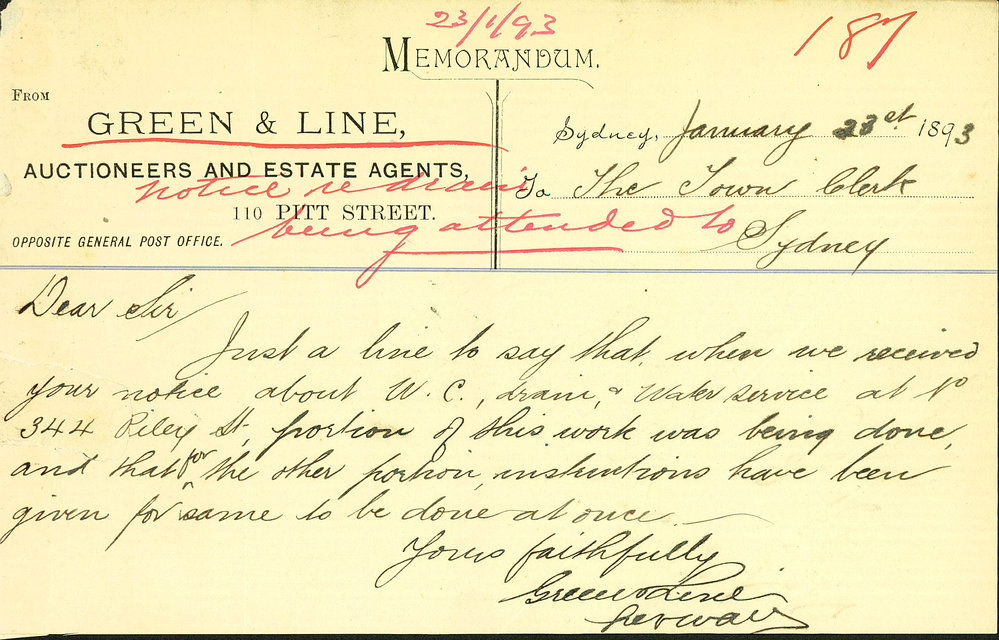 23/1/93
187
MEMORANDUM.
FROM
GREEN & LINE,
AUCTIONEERS AND ESTATE AGENTS,
110 PITT STREET.
OPPOSITE GENERAL POST OFFICE.
notice re drain
being attended to
Sydney, January 23rd 1893
To The Town Clerk
Sydney
Dear Sir
Just a line to say that when we received
your notice about W. C., drain, & Water service at No
344 Riley St, portion of this work was being done,
and that for the other portion, instructions have been
given for same to be done at once
Yours faithfully
Green & Line